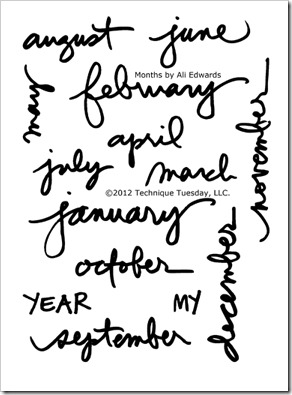 august june
may
february
Months by Ali Edwards
november
april
july march
©2012 Technique Tuesday, LLC.
january
december
october
YEAR MY
september